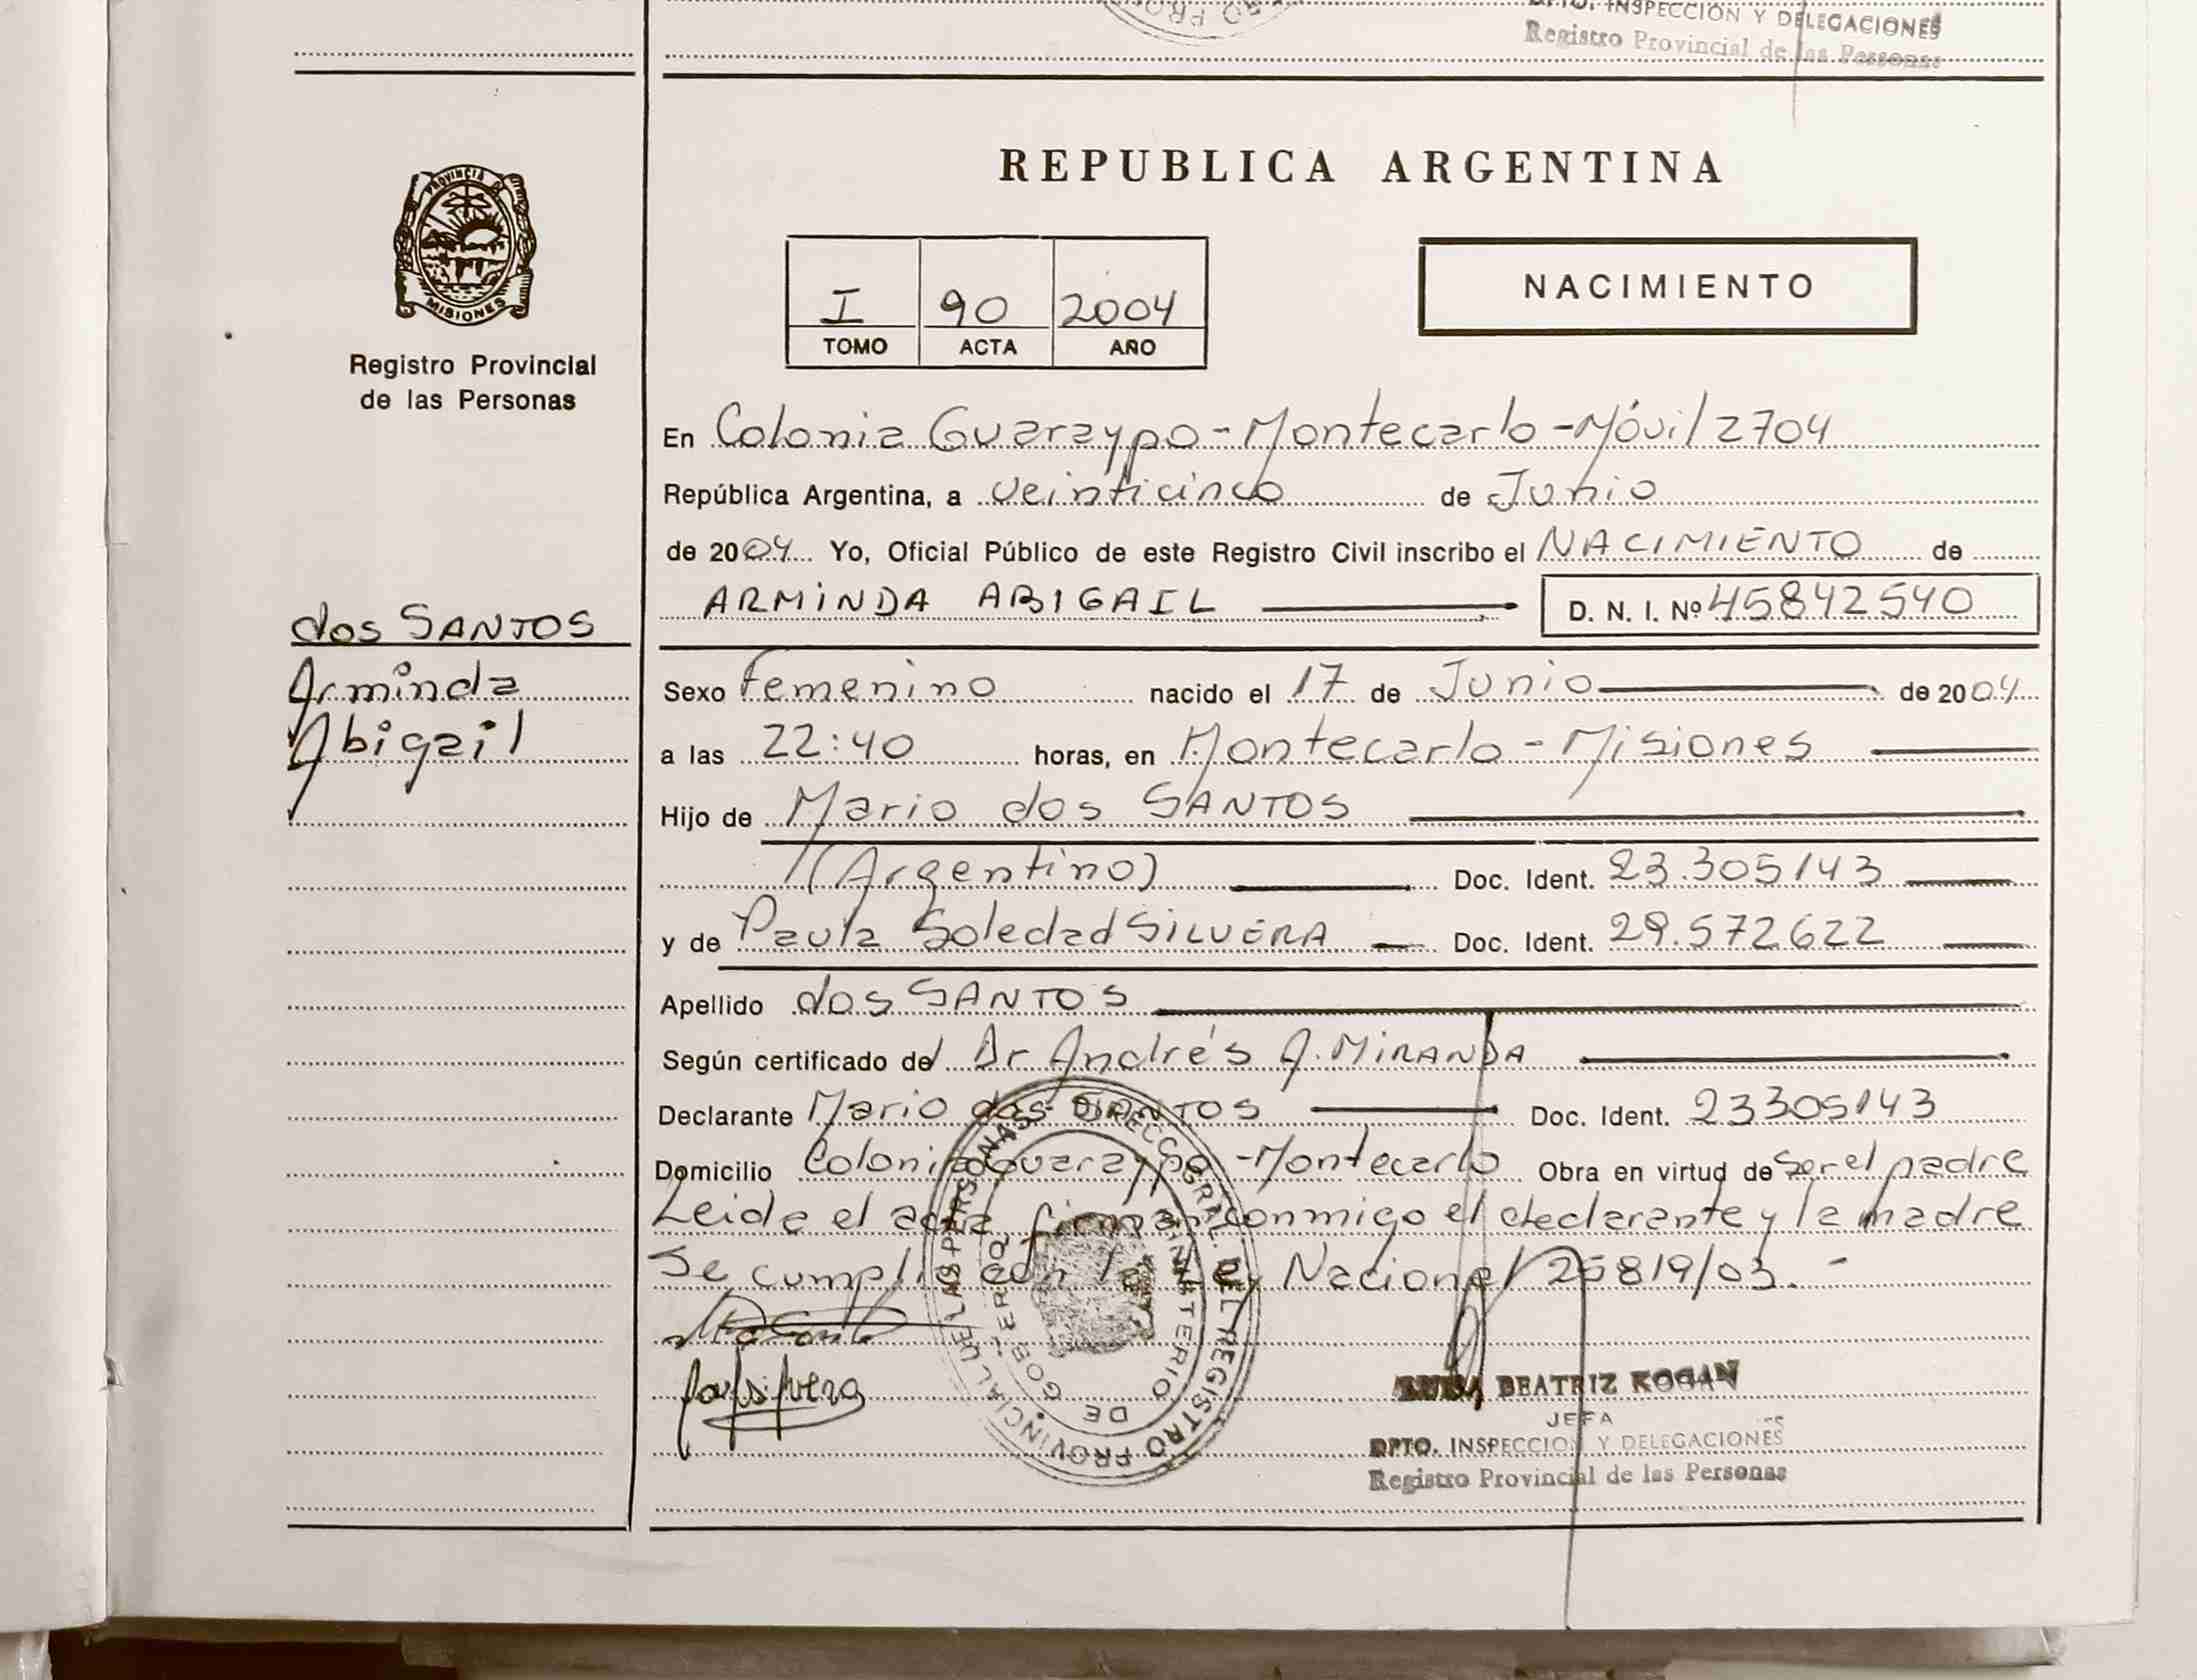 INSPECCION Y DELEGACIONES
Registro Provincial de las Personas
PROVINCIA DE
MISIONES
Registro Provincial
de las Personas
REPUBLICA ARGENTINA
I 90 2004
TOMO ACTA AÑO
NACIMIENTO
En Colonia Guaraypo - Montecarlo - Móvil 2704
República Argentina, a veinticinco de Junio
de 2004 Yo, Oficial Público de este Registro Civil inscribo el NACIMIENTO de
ARMINDA ABIGAIL D. N. I. Nº 45842540
dos SANTOS
Arminda
Abigail
Sexo Femenino nacido el 17 de Junio de 2004
a las 22:40 horas, en Montecarlo - Misiones
Hijo de Mario dos SANTOS
(Argentino) Doc. Ident. 23.305143
y de Paula Soledad SILVERA Doc. Ident. 29.572622
Apellido dos SANTOS
Según certificado del Dr Andrés A. MIRANDA
Declarante Mario dos SANTOS Doc. Ident. 23305143
Domicilio Colonia Guaraypo - Montecarlo Obra en virtud de Ser el padre
Leida el acta firman conmigo el declarante y la madre
Se cumplió con la Ley Nacional 25819/03. -
DIRECC. GRAL. DEL REGISTRO PROVINCIAL DE LAS PERSONAS
MINISTERIO DE GOBIERNO
BEATRIZ KOGAN
JEFA
DPTO. INSPECCION Y DELEGACIONES
Registro Provincial de las Personas